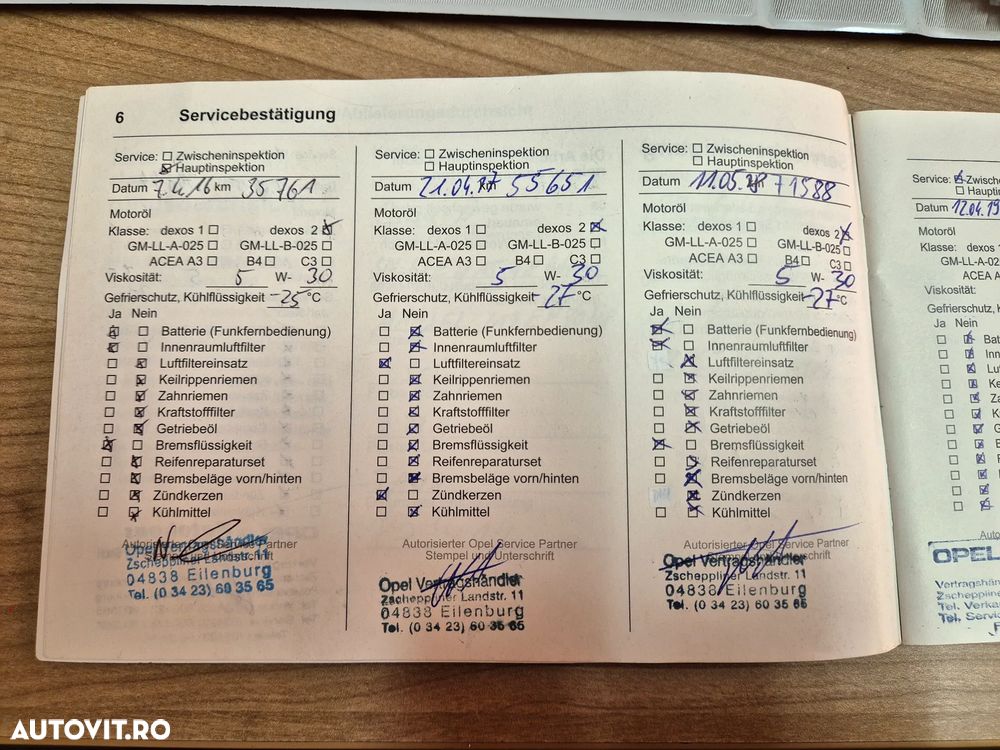 6 Servicebestätigung
Service: ☐ Zwischeninspektion
☒ Hauptinspektion
Datum 7.4.16 km 35761
Motoröl
Klasse: dexos 1 ☐ dexos 2 ☒
GM-LL-A-025 ☐ GM-LL-B-025 ☐
ACEA A3 ☐ B4 ☐ C3 ☐
Viskosität: 5 W- 30
Gefrierschutz, Kühlflüssigkeit -25 °C
Ja Nein
Batterie (Funkfernbedienung)
Innenraumluftfilter
Luftfiltereinsatz
Keilrippenriemen
Zahnriemen
Kraftstofffilter
Getriebeöl
Bremsflüssigkeit
Reifenreparaturset
Bremsbeläge vorn/hinten
Zündkerzen
Kühlmittel
Autorisierter Opel Service Partner
Stempel und Unterschrift
Opel Vertragshändler
Zscheppliner Landstr. 11
04838 Eilenburg
Tel. (0 34 23) 60 35 65
Service: ☐ Zwischeninspektion
☐ Hauptinspektion
Datum 21.04.17 km 55651
Motoröl
Klasse: dexos 1 ☐ dexos 2 ☒
GM-LL-A-025 ☐ GM-LL-B-025 ☐
ACEA A3 ☐ B4 ☐ C3 ☐
Viskosität: 5 W- 30
Gefrierschutz, Kühlflüssigkeit -27 °C
Ja Nein
Batterie (Funkfernbedienung)
Innenraumluftfilter
Luftfiltereinsatz
Keilrippenriemen
Zahnriemen
Kraftstofffilter
Getriebeöl
Bremsflüssigkeit
Reifenreparaturset
Bremsbeläge vorn/hinten
Zündkerzen
Kühlmittel
Autorisierter Opel Service Partner
Stempel und Unterschrift
Opel Vertragshändler
Zscheppliner Landstr. 11
04838 Eilenburg
Tel. (0 34 23) 60 35 65
Service: ☐ Zwischeninspektion
☐ Hauptinspektion
Datum 11.05.18 km 71588
Motoröl
Klasse: dexos 1 ☐ dexos 2 ☒
GM-LL-A-025 ☐ GM-LL-B-025 ☐
ACEA A3 ☐ B4 ☐ C3 ☐
Viskosität: 5 W- 30
Gefrierschutz, Kühlflüssigkeit -27 °C
Ja Nein
Batterie (Funkfernbedienung)
Innenraumluftfilter
Luftfiltereinsatz
Keilrippenriemen
Zahnriemen
Kraftstofffilter
Getriebeöl
Bremsflüssigkeit
Reifenreparaturset
Bremsbeläge vorn/hinten
Zündkerzen
Kühlmittel
Autorisierter Opel Service Partner
Stempel und Unterschrift
Opel Vertragshändler
Zscheppliner Landstr. 11
04838 Eilenburg
Tel. (0 34 23) 60 35 65
Service: ☒ Zwische
☐ Hauptins
Datum 12.04.19
Motoröl
Klasse: dexos
GM-LL-A-02
ACEA A
Viskosität:
Gefrierschutz,
Ja Nein
Bat
Inn
Lu
Ke
Za
K
G
B
R
B
Z
K
OPEL
Vertragshän
Zscheppline
Tel. Verka
Tel. Servic
AUTOVIT.RO